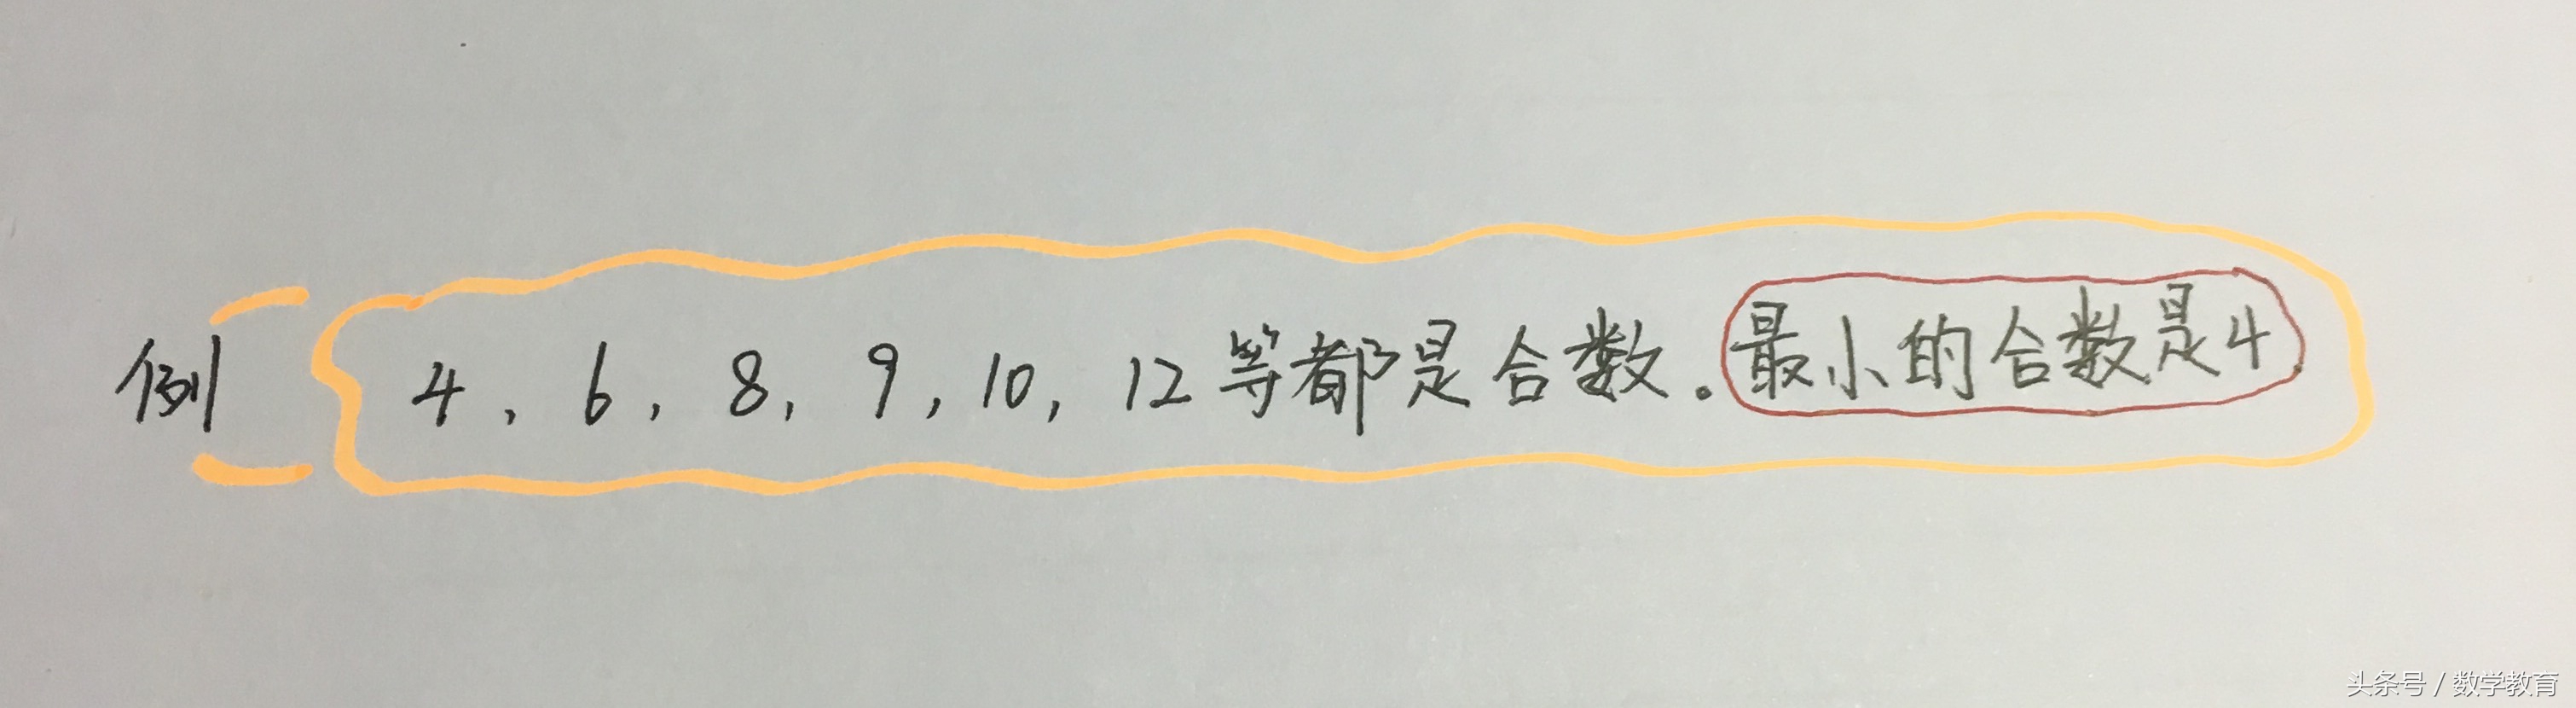 例 4, 6, 8, 9, 10, 12等都是合数。最小的合数是4
头条号 / 数学教育